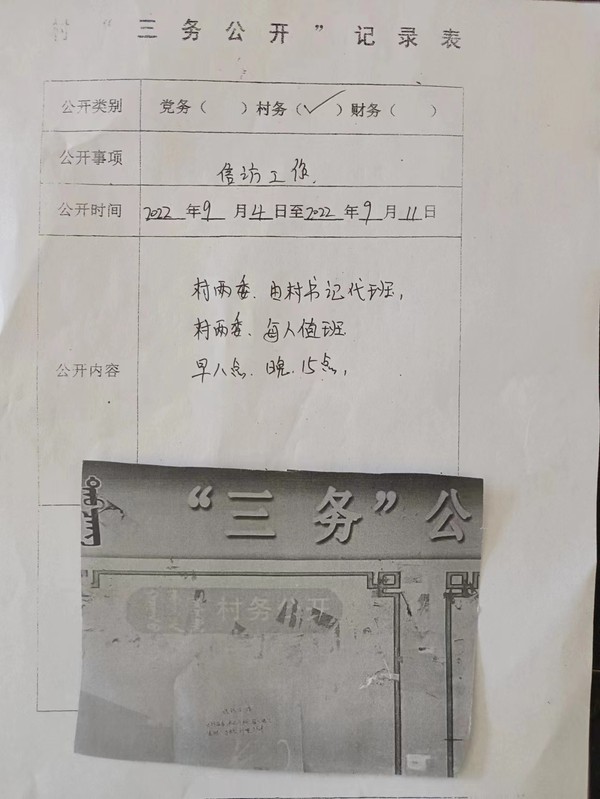 村“三务公开”记录表
公开类别 党务（ ）村务（✓）财务（ ）
公开事项 信访工作.
公开时间 2022年9月4日至2022年9月11日
公开内容
村两委.由村书记代班,
村两委.每人值班
早八点.晚.15点,
“三务”公
村务公开